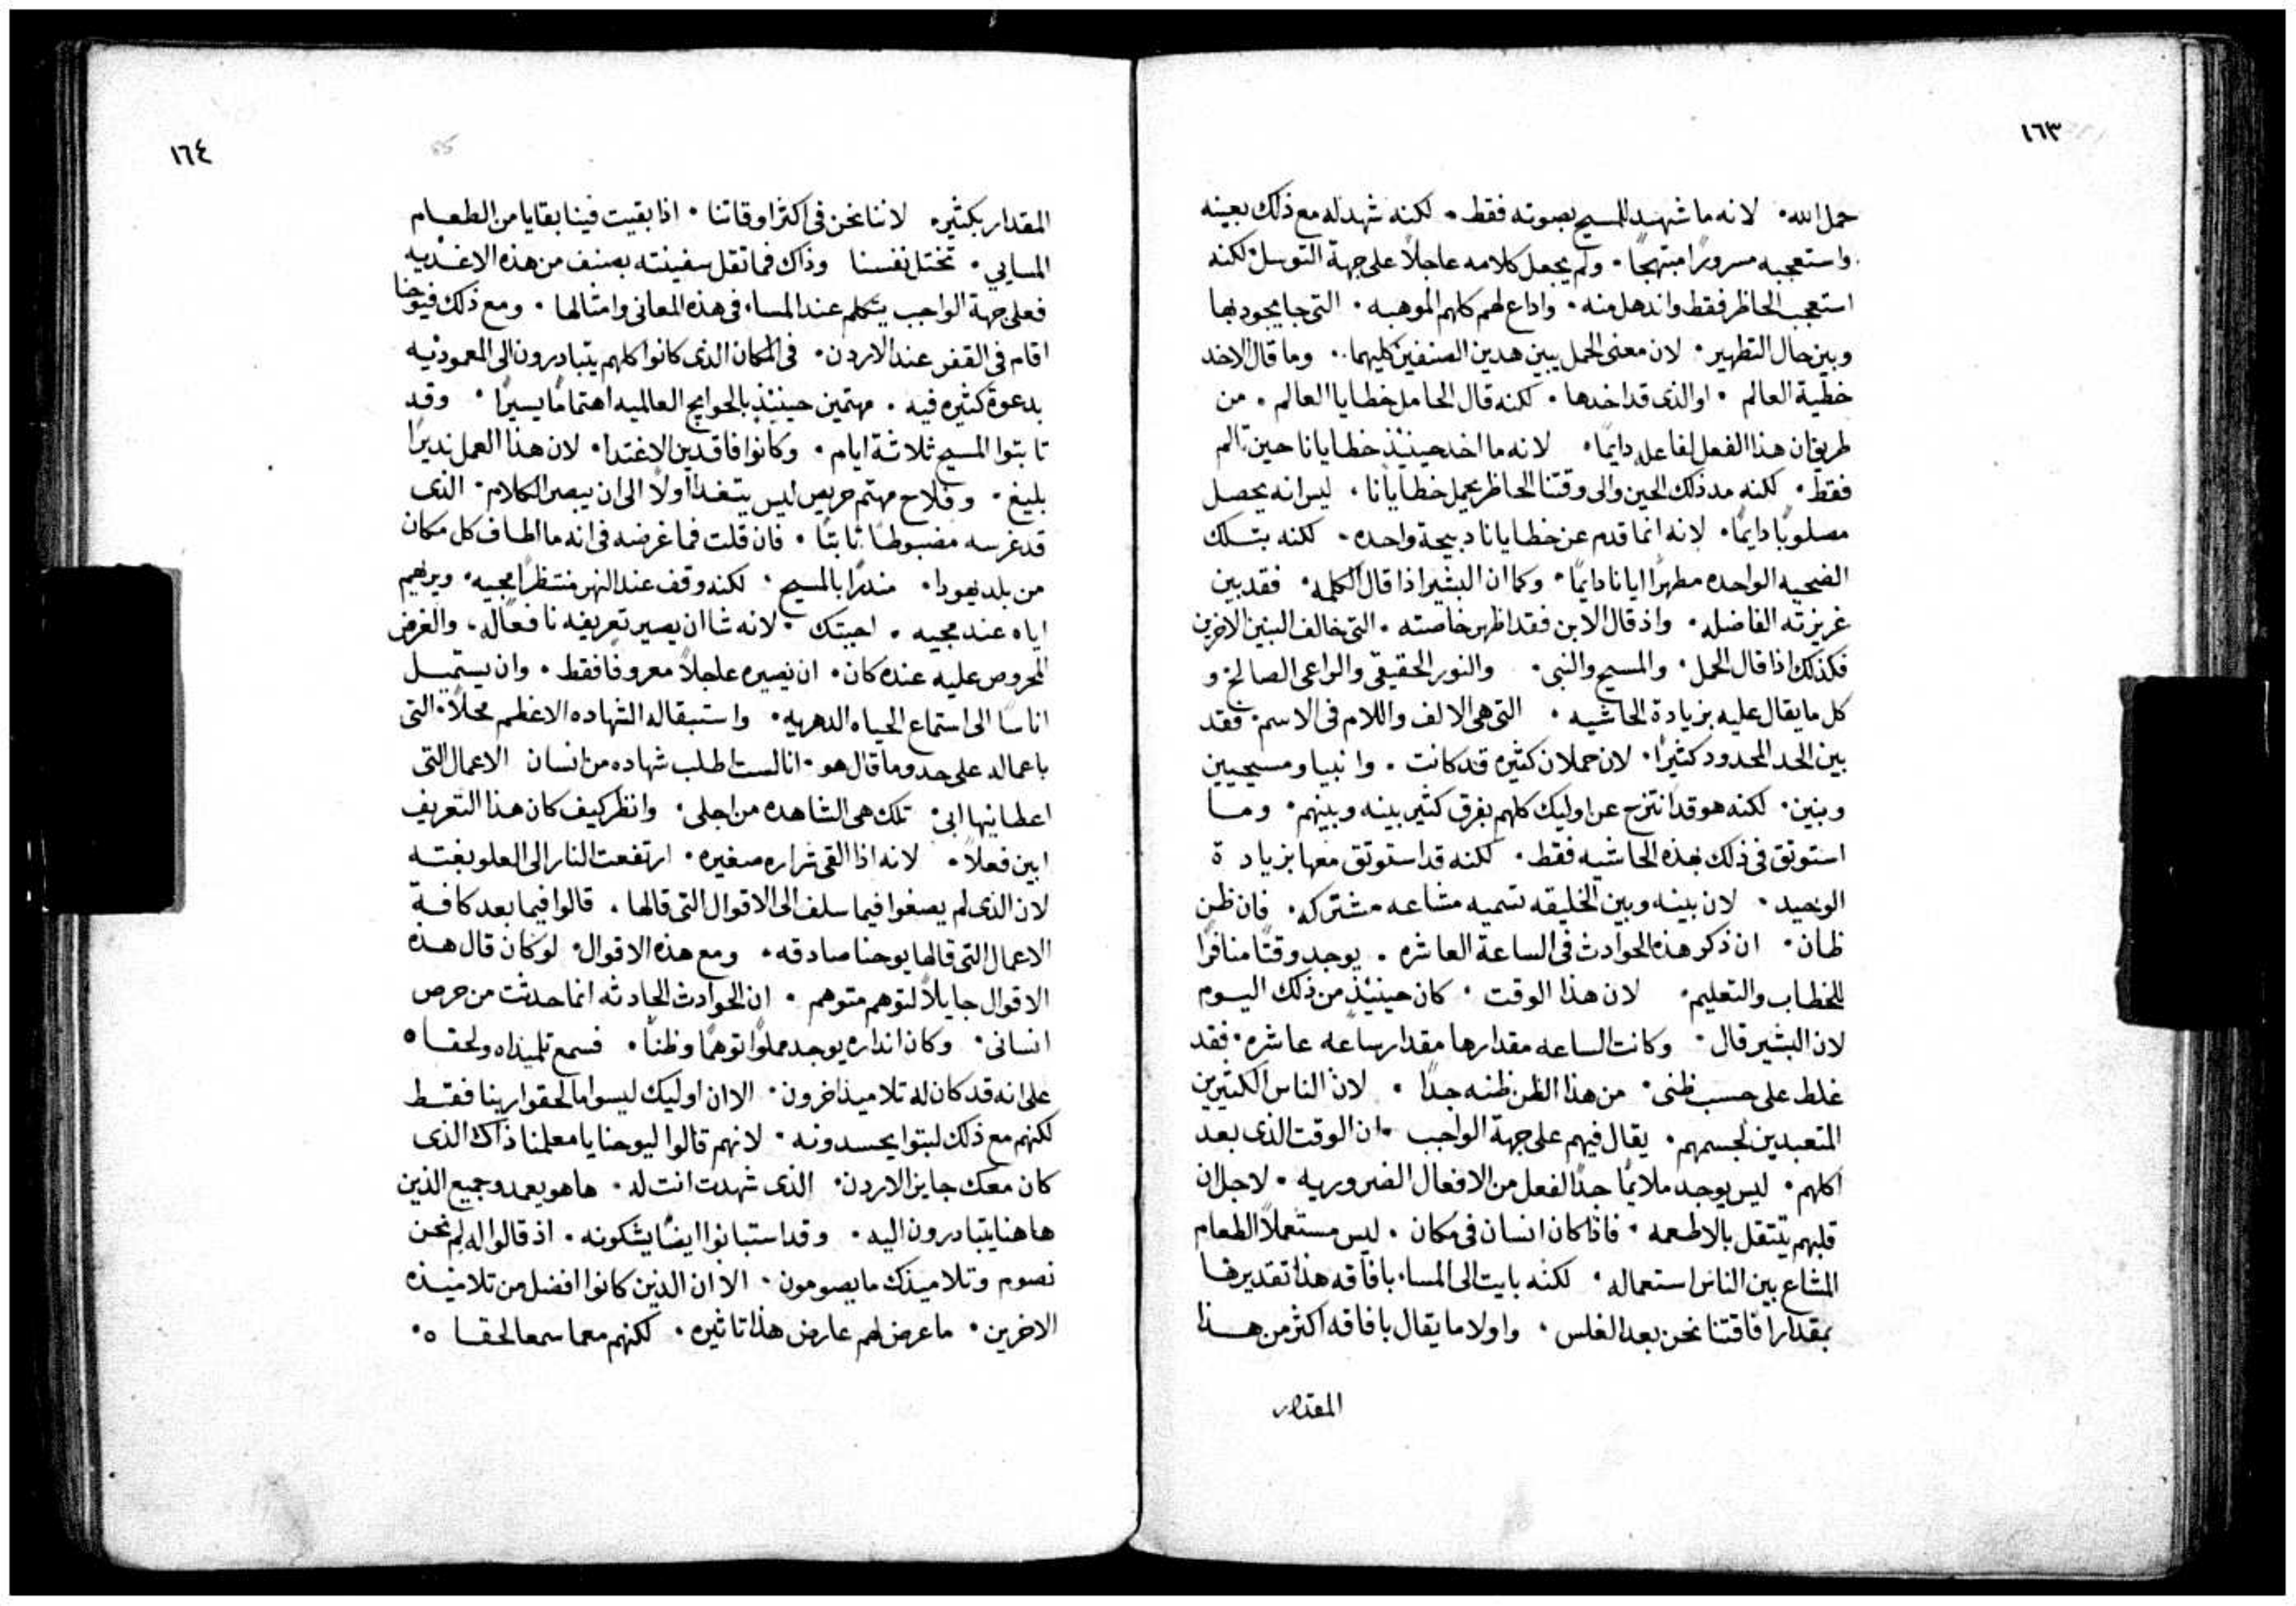 ١٦٣
حمل الله٠ لانه ما شهد للمسيح بصوته فقط٠ لكنه شهد له مع ذلك بعينه
واستعجبه مسرورًا مبتهجًا٠ ولم يجعل كلامه عاجلاً على جهة التوسل٠ لكنه
استعجب الحاظر فقط واندهل منه٠ واداع لهم كلهم الموهبه٠ التي جا يجود بها
وبين حال التطهير٠ لان معنى الحمل يبين هدين الصنفين كليهما٠ وما قال الاخد
خطية العالم٠ او الذى قد اخدها٠ لكنه قال الحامل خطايا العالم٠ من
طريق ان هذا الفعل لفاعله دايمًا٠ لانه ما اخد حينيذ خطايانا حين تالم
فقط٠ لكنه مد ذلك الحين والى وقتنا الحاظر يحمل خطايانا٠ ليس انه يحصل
مصلوبًا دايمًا٠ لانه انما قدم عن خطايانا دبيحة واحده٠ لكنه بتلك
الضحيه الواحده مطهرًا ايانا دايمًا٠ وكما ان البشير اذا قال الكلمه٠ فقد بين
غريزته الفاضله٠ واذ قال الابن فقد اظهر خاصته٠ التي خالف البنين الاخرين
فكذلك اذا قال الحمل٠ والمسيح والنبي٠ والنور الحقيقي والراعي الصالح و
كل ما يقال عليه بزيادة الحاشيه٠ التي هي الالف واللام في الاسم٠ فقد
بين الحد المحدود كثيرًا٠ لان حملان كثيره قد كانت٠ وانبيا ومسيحيين
وبنين٠ لكنه هو قد انتزح عن اوليك كلهم بفرق كثير بينه وبينهم٠ وما
استوتق في ذلك بهذه الحاشيه فقط٠ لكنه قد استوتق معها بزيادة
الوحيد٠ لان بينه وبين الخليقه تسميه مشاعه مشتركه٠ فان ظن
ظان٠ ان ذكر هذه الحوادث في الساعة العاشره٠ يوجد وقتًا منافرًا
للخطاب والتعليم٠ لان هذا الوقت٠ كان حينيذ من ذلك اليوم
لان البشير قال٠ وكانت الساعه مقدارها مقدار ساعه عاشره٠ فقد
غلط على حسب ظني٠ من هذا الظن ظنه جدًا٠ لان الناس الكثيرين
المتعبدين لجسمهم٠ يقال فيهم على جهة الواجب٠ ان الوقت الذى بعد
اكلهم٠ ليس يوجد ملايمًا جدًا لفعل من الافعال الضروريه٠ لاجل ان
قلبهم يتتقل بالاطعمه٠ فاذا كان انسان في مكان٠ ليس مستعملاً الطعام
المشاع بين الناس استعماله٠ لكنه بايت الى المسا٠ بافاقه هذا تقديرها
بمقدار افاقتنا نحن بعد الغلس٠ واولا ما يقال بافاقه اكثر من هذا
المقدار
١٦٤
المقدار بكثير٠ لاننا نحن في اكثر اوقاتنا٠ اذا بقيت فينا بقايا من الطعام
المسايي٠ تختل نفسنا وذاك فما تقل سفينته بصنف من هذه الاغذيه
فعلى جهة الواجب يتكلم عند المسا٠ في هذه المعاني وامثالها٠ ومع ذلك فيوحنا
اقام في القفر عند الاردن٠ في المكان الذى كانوا كلهم يتبادرون الى المعموديه
بدعوة كثيره فيه٠ مهتمين حينيذ بالحوايج العالميه اهتمامًا يسيرًا٠ وقد
تابتوا المسيح ثلاثة ايام٠ وكانوا فاقدين الاغتدا٠ لان هذا العمل نديرًا
بليغ٠ وفلاح مهتم حريص ليس يتغدا اولاً الى ان يبصر الكلام٠ الذى
قد غرسه مضبوطًا ثابتًا٠ فان قلت فما غرضه في انه ما الطاف كل مكان
من بلد يهودا٠ مندرًا بالمسيح٠ لكنه وقف عند النهر منتظرًا مجيه٠ ويريهم
اياه عند مجيه٠ اجبتك٠ لانه شا ان يصير تعريفه نافعًا له٠ والغرض
المحروص عليه عنده كان٠ ان يصيره عاجلاً معروفًا فقط٠ وان يستميل
اناسًا الى استماع الحياه الدهريه٠ واستبقا له الشهاده الاعظم محلاً٠ التي
باعماله على حد وما قال هو٠ انا لست اطلب شهاده من انسان الاعمال التي
اعطانيها ابي٠ تلك هي الشاهده من اجلي٠ وانظر كيف كان هذا التعريف
ابين فعلاً٠ لانه اذا القى شراره صغيره٠ ارتفعت النار الى العلو بغته
لان الذى لم يصغوا فيما سلف الى الاقوال التي قالها٠ قالوا فيما بعد كافة
الاعمال التي قالها يوحنا صادقه٠ ومع هذه الاقوال٠ لو كان قال هذه
الاقوال جايلاً لتوهم متوهم٠ ان الحوادث الحادثه انما حدثت من حرص
انساني٠ وكان انذاره يوجد مملوًا توهمًا وظنًا٠ فسمع تلميذاه ولحقاه
على انه قد كان له تلاميذ اخرون٠ الا ان اوليك ليسوا ما لحقوا ربنا فقط
لكنهم مع ذلك لبتوا يحسدونه٠ لانهم قالوا ليوحنا يا معلمنا ذاك الذى
كان معك جايز الاردن٠ الذى شهدت انت له٠ ها هو يعمد وجميع الذين
هاهنا يتبادرون اليه٠ وقد استبانوا ايضًا يشكونه٠ اذ قالوا له لم نحن
نصوم وتلاميذك ما يصومون٠ الا ان الذين كانوا افضل من تلاميذه
الاخرين٠ ما عرض لهم عارض هذا تاثيره٠ لكنهم معما سمعا لحقاه٠